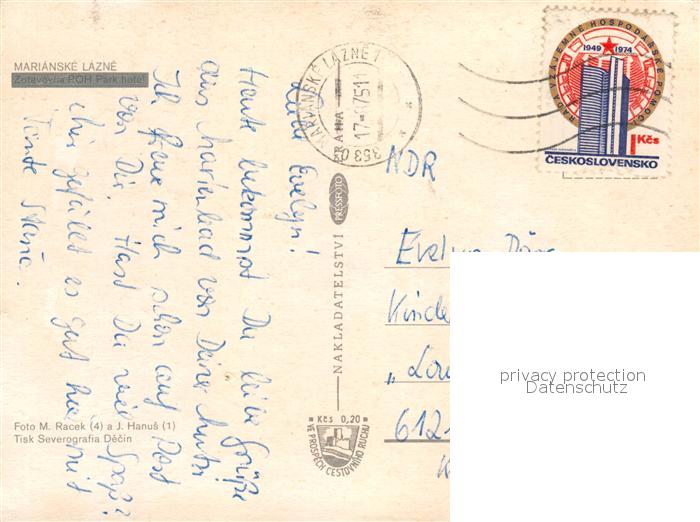 MARIÁNSKÉ LÁZNĚ
Zotavovna ROH Park hotel
Liebe Evelyn!
Heute bekommst Du liebe Grüße
aus Marienbad von Deiner Mutti
Ich freue mich schon auf Post
von Dir. Hast Du viel Spaß?
Mir gefällt es gut hier mit
Tante Staňa.
Foto M. Racek (4) a J. Hanuš (1)
Tisk Severografia Děčín
NAKLADATELSTVÍ PRESSFOTO PRAHA
Kčs 0,20
VE PROSPĚCH CESTOVNÍHO RUCHU
MARIÁNSKÉ LÁZNĚ 1
353 01
RADA VZÁJEMNÉ HOSPODÁŘSKÉ POMOCI
1949 1974
1 Kčs
ČESKOSLOVENSKO
NDR
Evelyn
Kinde
"Lou
612
privacy protection
Datenschutz